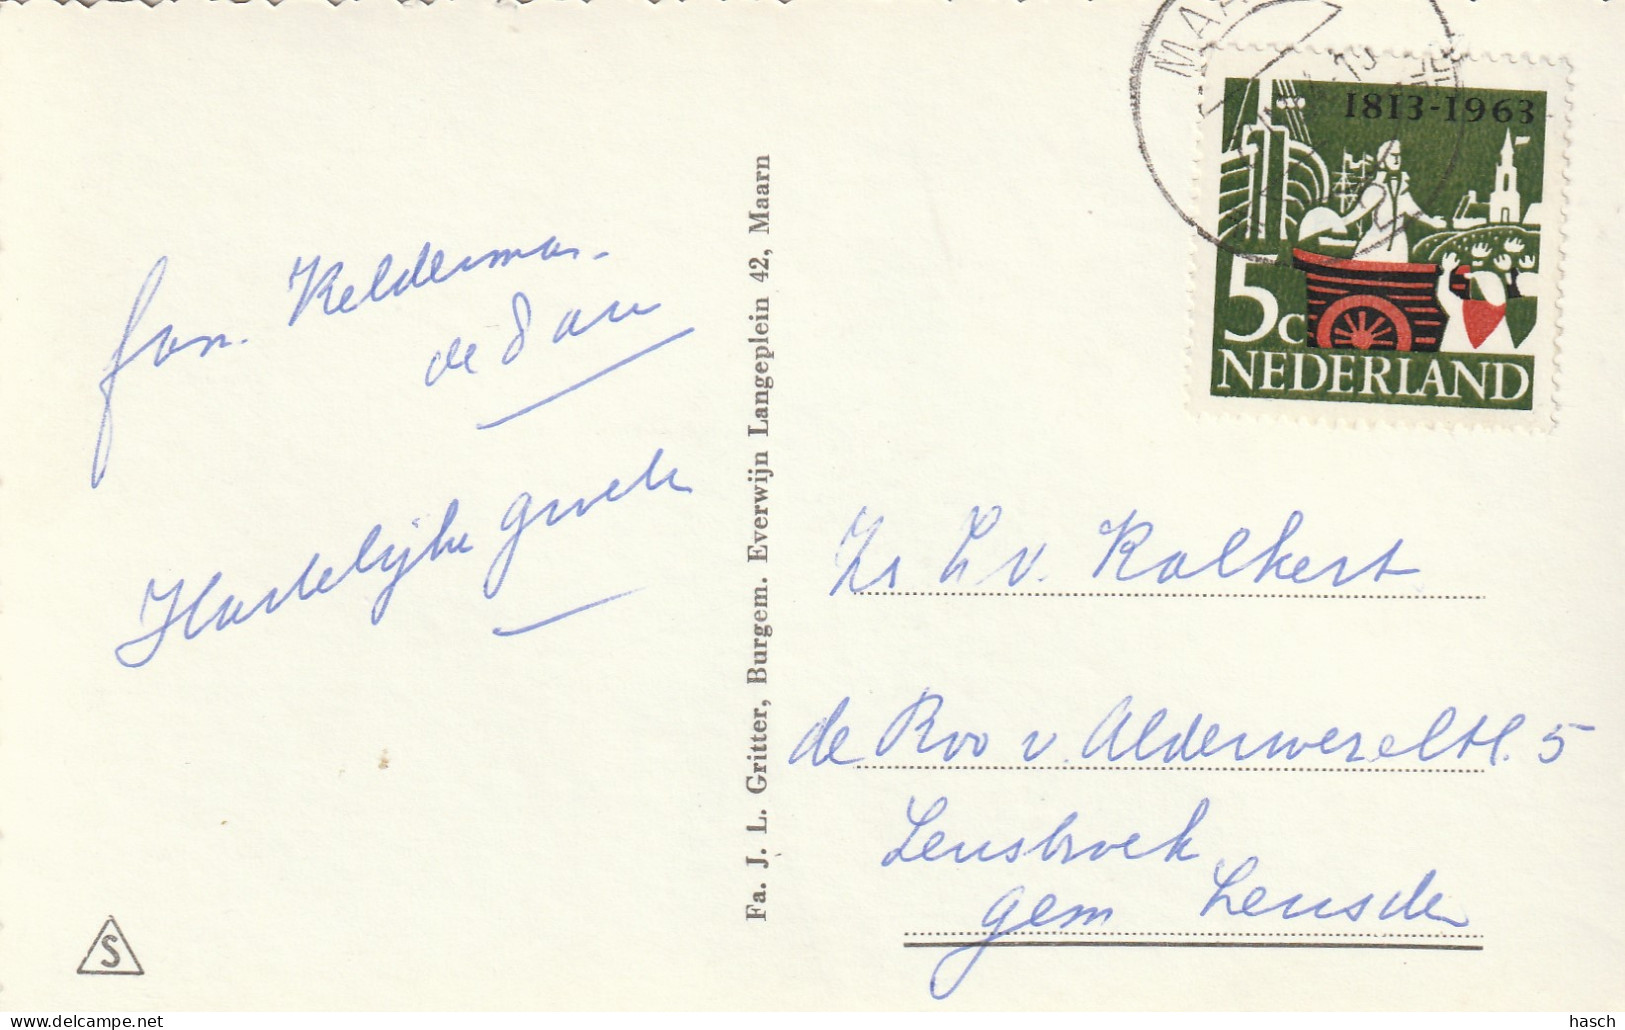 fam. Keldermas.
Hartelijke groeten
Fa. J. L. Gritter, Burgem. Everwijn Langeplein 42, Maarn
S
MAA
1813-1963
5c
NEDERLAND
v. Kalkert
de Roo v. Alderwereltl. 5
Leusbroek
gem Leusden
hasch